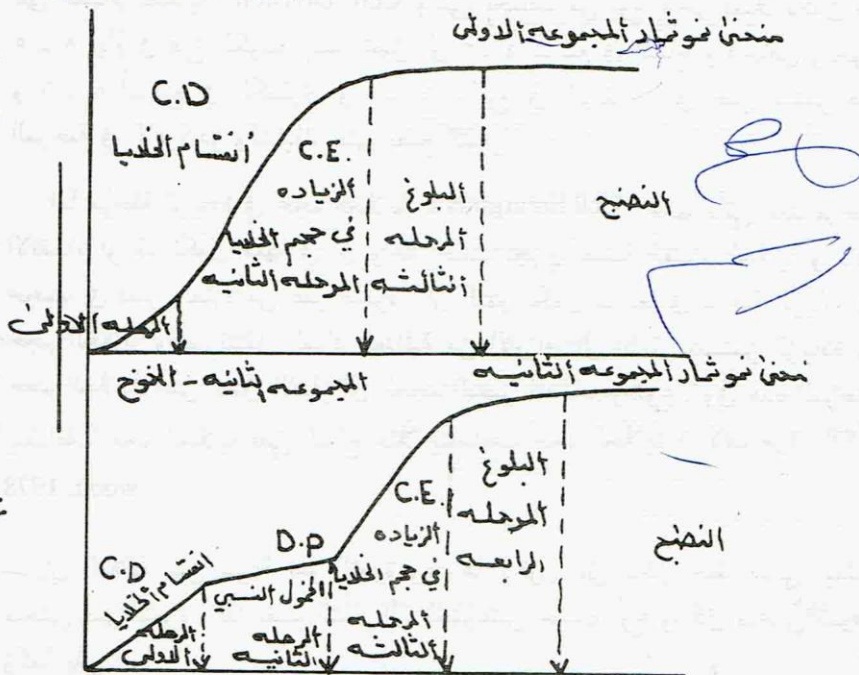 منحنى نمو ثمار المجموعه الاولى
C.D
أنتسام الخلايا
C.E.
الزياده
في حجم الخلايا
المرحله الثانيه
البلوغ
المرحله
الثالثه
النضج
المرحله الاولى
منحنى نمو ثمار المجموعه الثانيه
المجموعه الثانيه - الخوخ
C.D
انقسام الخلايا
المرحله
الاولى
D.P
الخمول النسبي
المرحله
الثانيه
C.E.
الزياده
في حجم الخلايا
المرحله
الثالثه
البلوغ
المرحله
الرابعه
النضج